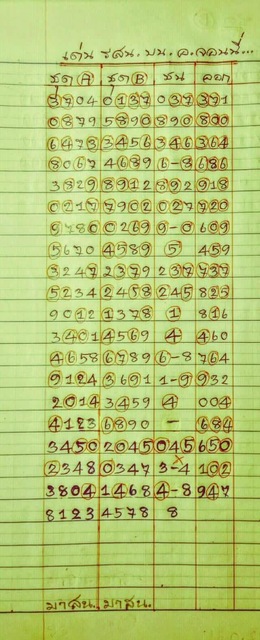 เด่น รสน. บน. อ. จอนนี่...
ชุด Ⓐ ชุด Ⓑ ชน ออก
3704 0137 037 371
0879 5890 890 800
6473 3456 346 364
8067 4689 6-8 686
3829 8912 892 918
0217 7902 027 720
9780 0269 9-0 609
5670 4589 5 459
3247 2379 237 737
5234 2458 245 825
9012 1378 1 816
3401 4569 4 460
4658 6789 6-8 764
9124 3691 1-9 932
2014 3459 4 004
4123 6890 - 684
3450 2045 045 650
2348 0347 3-4 102
3804 1468 4-8 947
8123 4578 8
มาสน. มาสน.